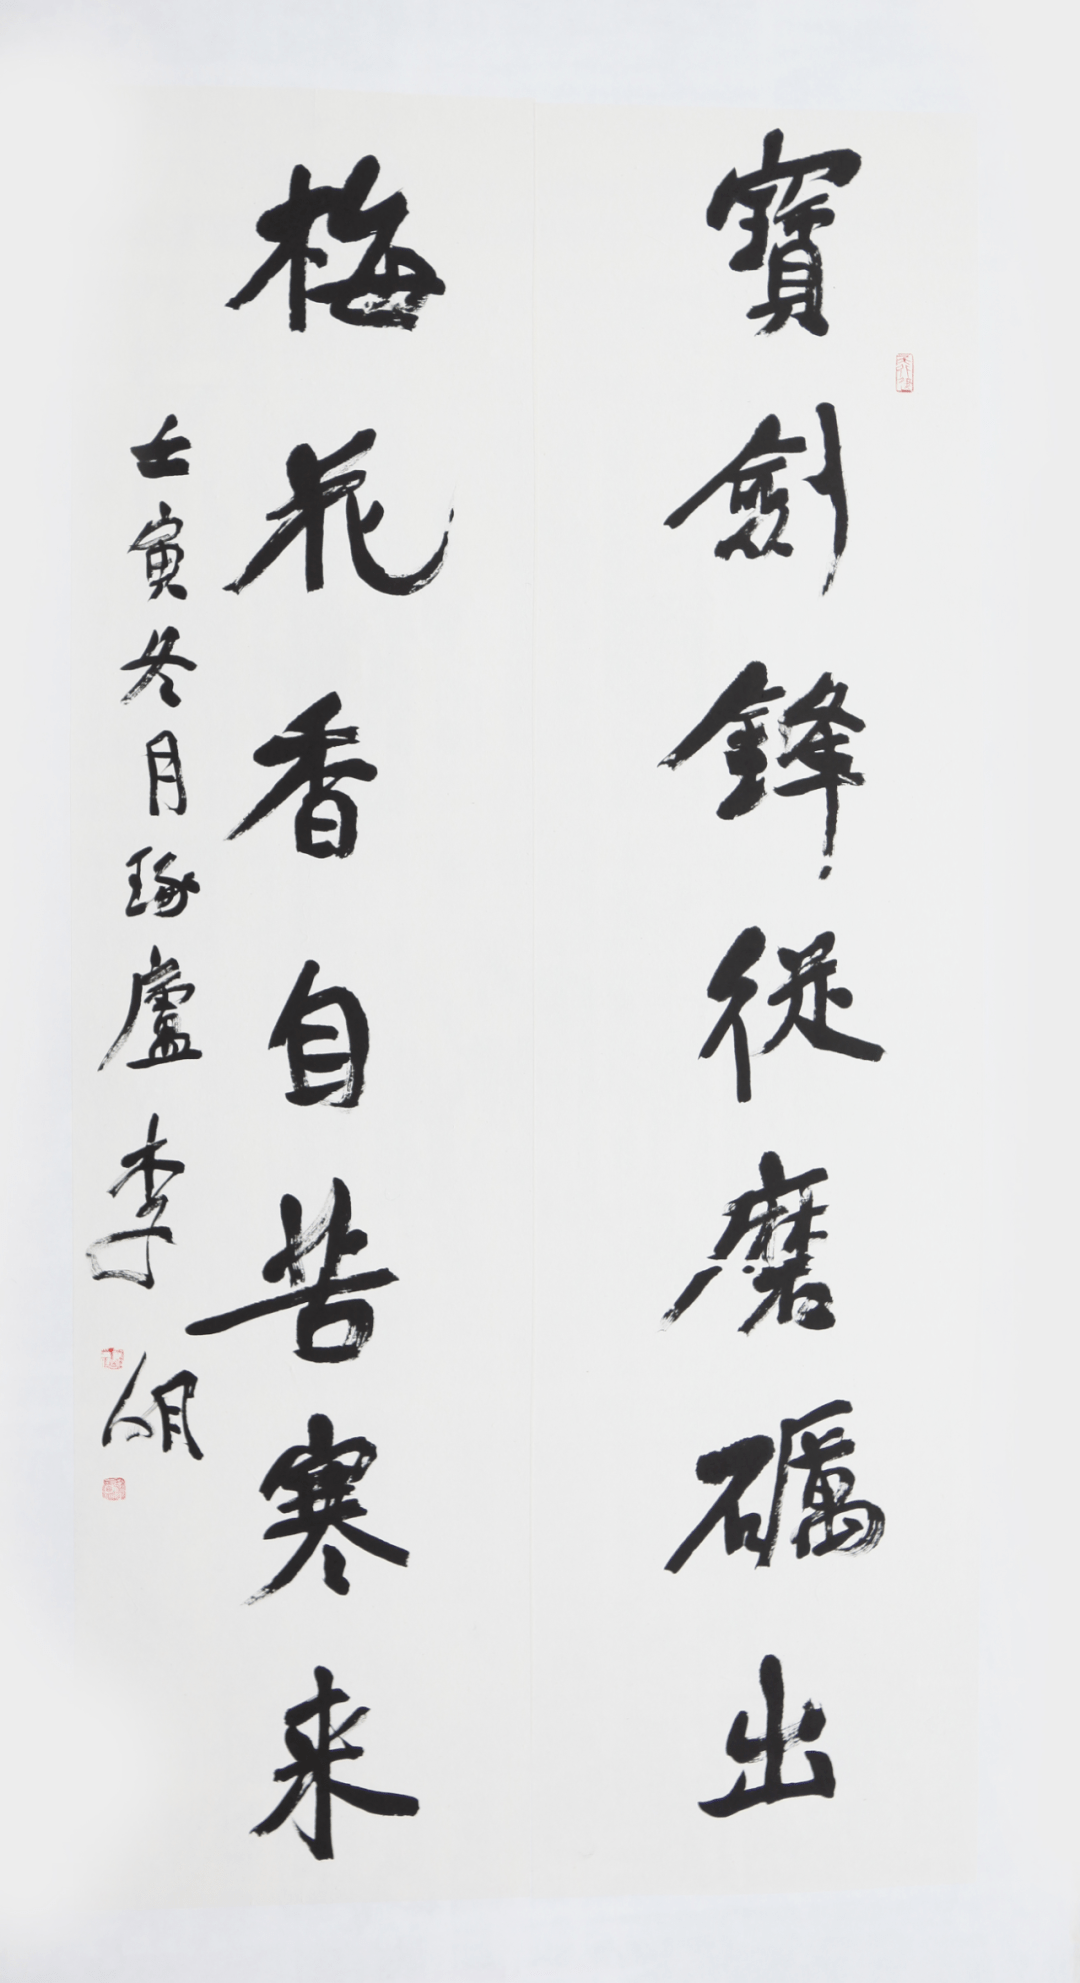 寶劍鋒從磨礪出
梅花香自苦寒来
壬寅冬月琢廬李